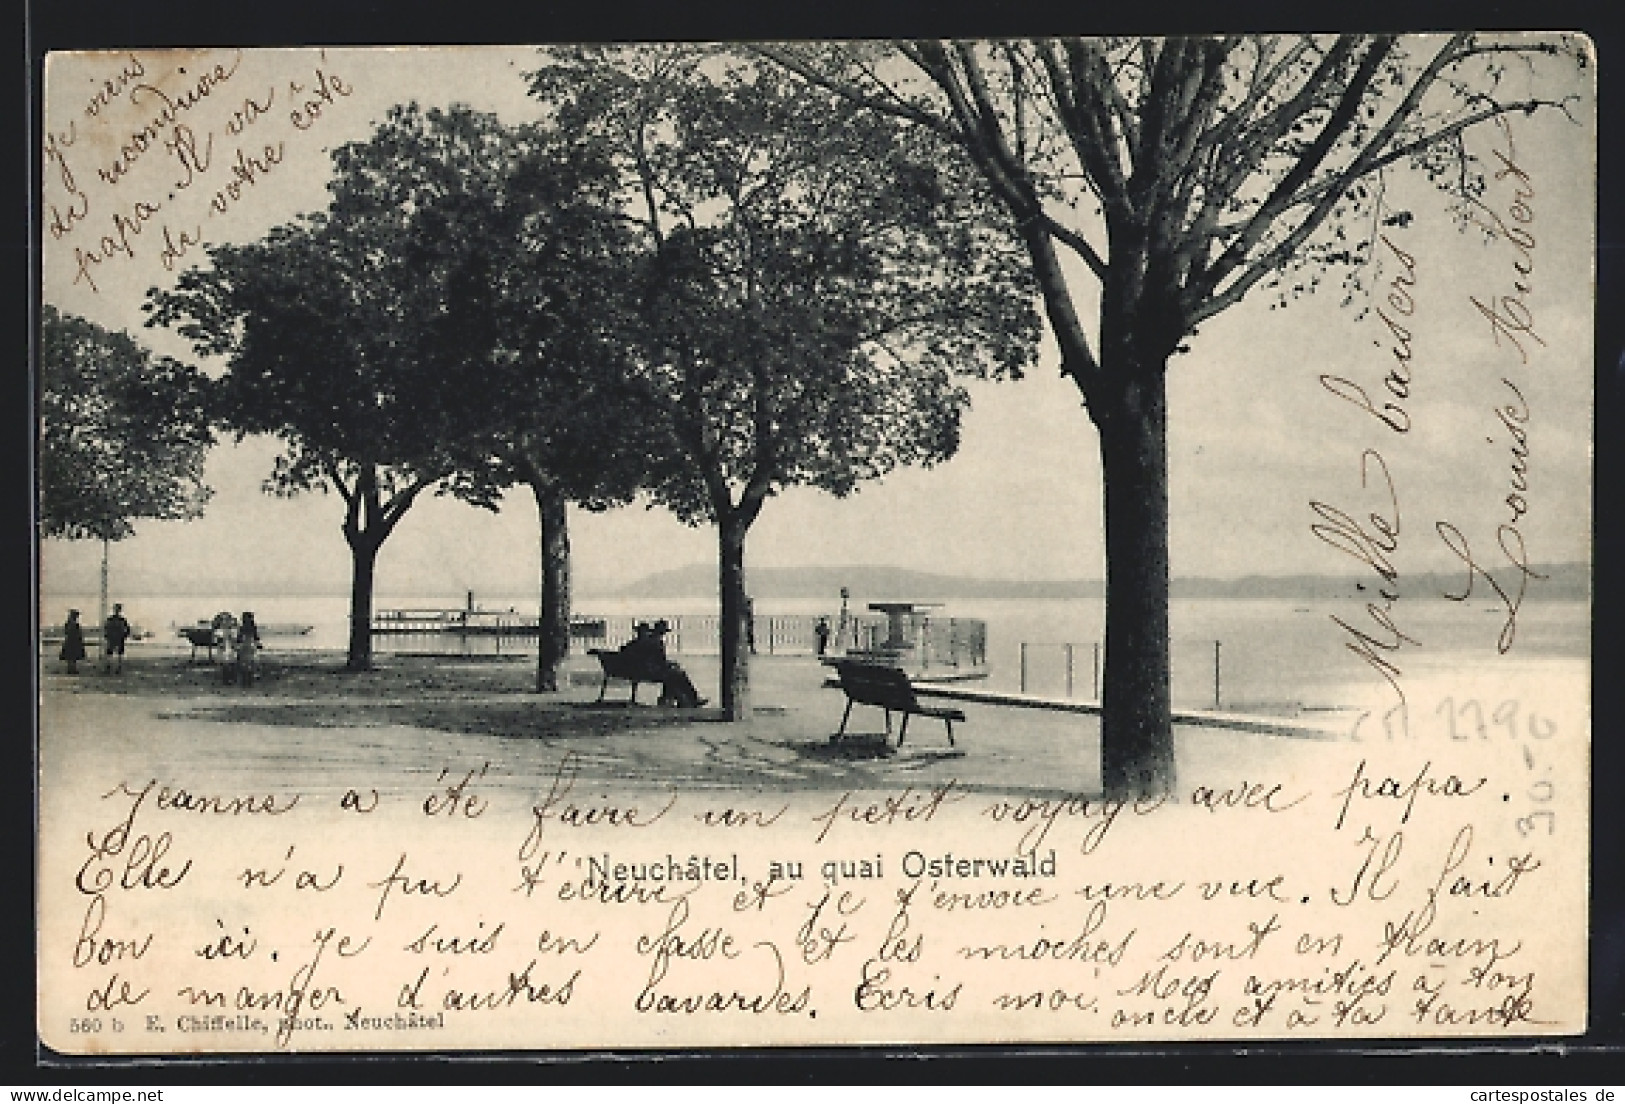 Je viens
de reconduire
papa. Il va
de votre côté
Jeanne a été faire un petit voyage avec papa.
Elle n'a pu t'écrire et je t'envoie une vue. Il fait
bon ici. Je suis en classe et les mioches sont en train
de manger, d'autres bavardes. Ecris moi. Mes amitiés à ton
oncle et à ta tante
Mille baisers
Louise Aubert
Neuchâtel, au quai Osterwald
560 b E. Chiffelle, phot., Neuchâtel
30.-
cartespostales de